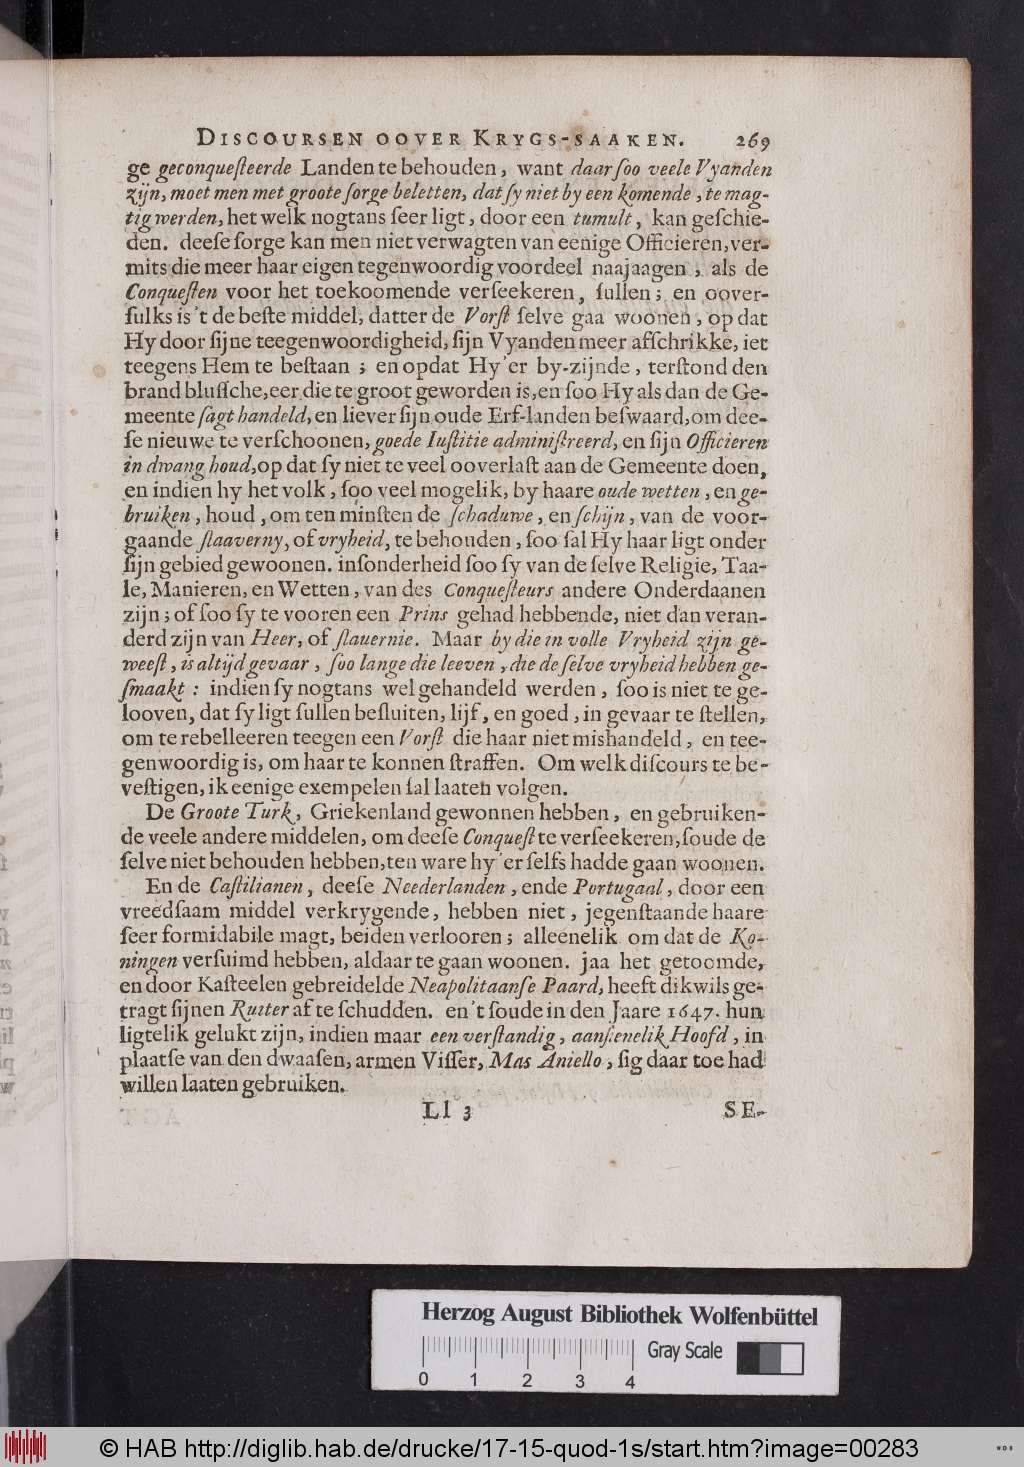 DISCOURSEN OOVER KRYGS-SAAKEN. 269
ge geconqueſteerde Landen te behouden, want daar ſoo veele Vyanden
zijn, moet men met groote ſorge beletten, dat ſy niet by een komende, te mag-
tig werden, het welk nogtans ſeer ligt, door een tumult, kan geſchie-
den. deeſe ſorge kan men niet verwagten van eenige Officieren, ver-
mits die meer haar eigen tegenwoordig voordeel naajaagen, als de
Conqueſten voor het toekoomende verſeekeren, ſullen; en oover-
ſulks is 't de beſte middel, datter de Vorſt ſelve gaa woonen, op dat
Hy door ſijne teegenwoordigheid, ſijn Vyanden meer afſchrikke, iet
teegens Hem te beſtaan; en opdat Hy 'er by-zijnde, terſtond den
brand bluſſche, eer die te groot geworden is, en ſoo Hy als dan de Ge-
meente ſagt handeld, en liever ſijn oude Erf-landen beſwaard, om dee-
ſe nieuwe te verſchoonen, goede Iuſtitie adminiſtreerd, en ſijn Officieren
in dwang houd, op dat ſy niet te veel ooverlaſt aan de Gemeente doen,
en indien hy het volk, ſoo veel mogelik, by haare oude wetten, en ge-
bruiken, houd, om ten minſten de ſchaduwe, en ſchijn, van de voor-
gaande ſlaaverny, of vryheid, te behouden, ſoo ſal Hy haar ligt onder
ſijn gebied gewoonen. inſonderheid ſoo ſy van de ſelve Religie, Taa-
le, Manieren, en Wetten, van des Conqueſteurs andere Onderdaanen
zijn; of ſoo ſy te vooren een Prins gehad hebbende, niet dan veran-
derd zijn van Heer, of ſlauernie. Maar by die in volle Vryheid zijn ge-
weeſt, is altijd gevaar, ſoo lange die leeven, die de ſelve vryheid hebben ge-
ſmaakt: indien ſy nogtans wel gehandeld werden, ſoo is niet te ge-
looven, dat ſy ligt ſullen beſluiten, lijf, en goed, in gevaar te ſtellen,
om te rebelleeren teegen een Vorſt die haar niet mishandeld, en tee-
genwoordig is, om haar te konnen ſtraffen. Om welk diſcours te be-
veſtigen, ik eenige exempelen ſal laaten volgen.
De Groote Turk, Griekenland gewonnen hebben, en gebruiken-
de veele andere middelen, om deeſe Conqueſt te verſeekeren, ſoude de
ſelve niet behouden hebben, ten ware hy 'er ſelfs hadde gaan woonen.
En de Caſtilianen, deeſe Neederlanden, ende Portugaal, door een
vreedſaam middel verkrygende, hebben niet, jegenſtaande haare
ſeer formidabile magt, beiden verlooren; alleenelik om dat de Ko-
ningen verſuimd hebben, aldaar te gaan woonen. jaa het getoomde,
en door Kaſteelen gebreidelde Neapolitaanſe Paard, heeft dikwils ge-
tragt ſijnen Ruiter af te ſchudden. en 't ſoude in den Jaare 1647. hun
ligtelik gelukt zijn, indien maar een verſtandig, aanſienelik Hoofd, in
plaatſe van den dwaaſen, armen Viſſer, Mas Aniello, ſig daar toe had
willen laaten gebruiken.
Ll 3 SE-
Herzog August Bibliothek Wolfenbüttel
Gray Scale
0 1 2 3 4
© HAB http://diglib.hab.de/drucke/17-15-quod-1s/start.htm?image=00283